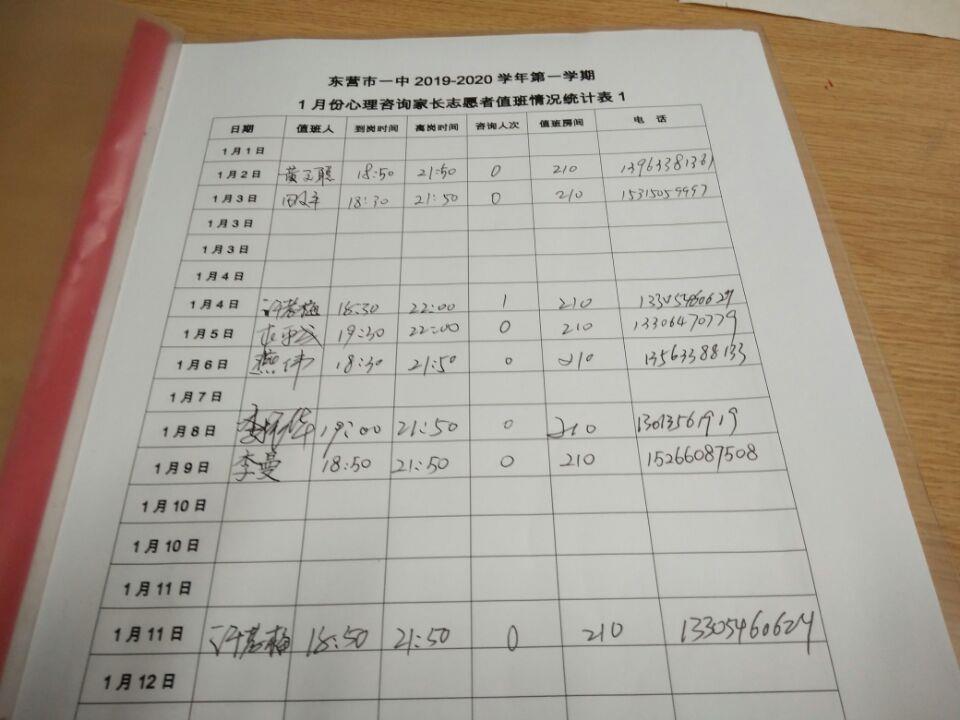 东营市一中 2019-2020 学年第一学期
1 月份心理咨询家长志愿者值班情况统计表 1
日期 值班人 到岗时间 离岗时间 咨询人次 值班房间 电 话
1月1日
1月2日 18:50 21:50 0 210 13963381381
1月3日 18:30 21:50 0 210 15315059997
1月3日
1月3日
1月4日
1月4日 18:30 22:00 1 210 13305460627
1月5日 19:30 22:00 0 210 13306470779
1月6日 燕伟 18:30 21:50 0 210 13563388133
1月7日
1月8日 19:00 21:50 0 210
1月9日 李曼 18:50 21:50 0 210 15266087508
1月10日
1月10日
1月11日
1月11日 18:50 21:50 0 210 13305460627
1月12日